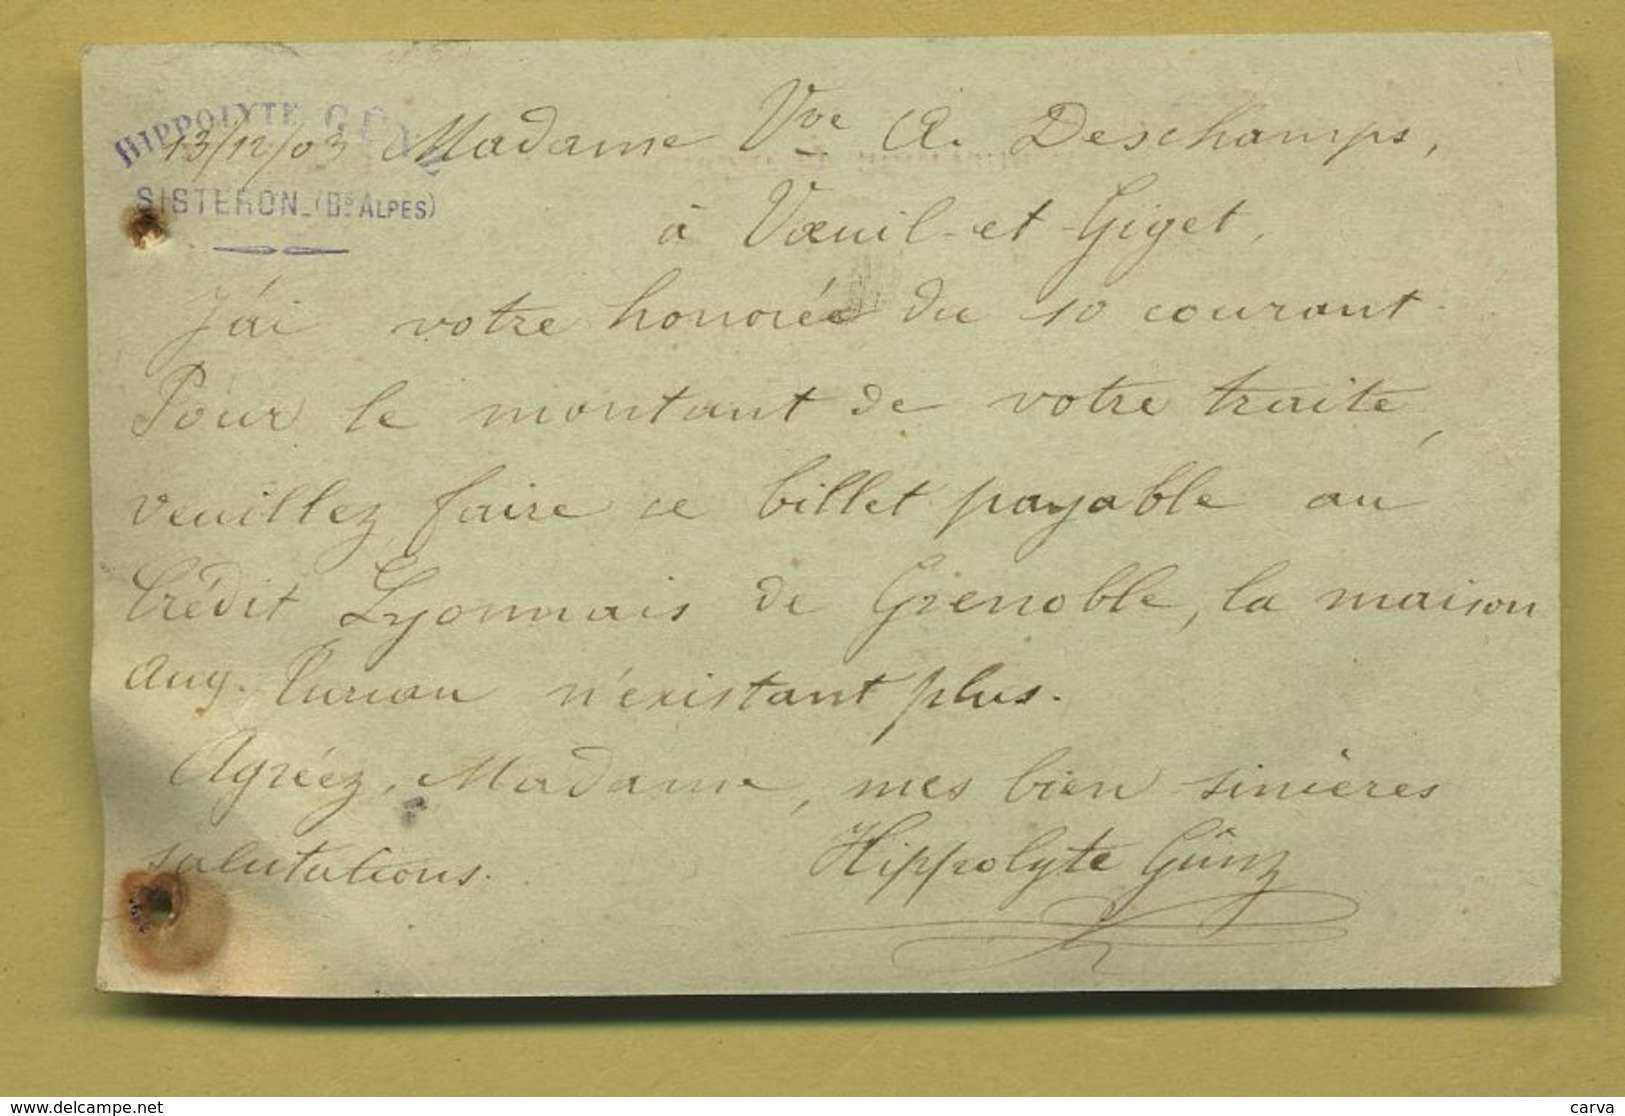 HIPPOLYTE
SISTERON_(Bs ALPES)
13/12/03 Madame Vve A. Deschamps,
à Vœuil-et-Giget,
J'ai votre honorée du 10 courant.
Pour le montant de votre traite,
veuillez faire ce billet payable au
Crédit Lyonnais de Grenoble, la maison
Aug. n'existant plus.
Agréez, Madame, mes bien sincères
salutations.
Hippolyte Günz
www.delcampe.net
carva